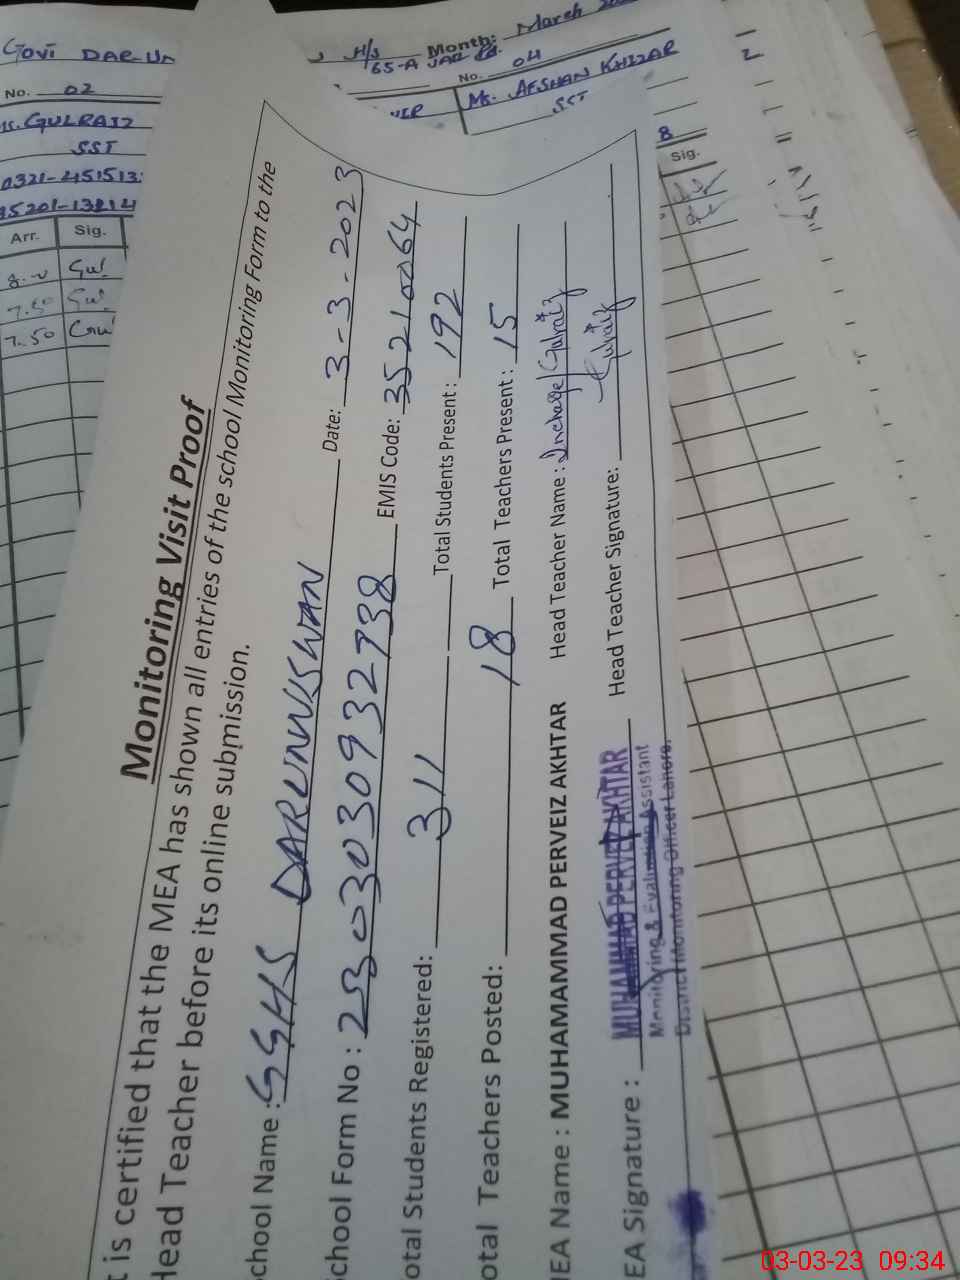 Govt DAR-UN
H/S Month: March
65-A JAR Rd.
No. 02
No. 04
Ms. GULRAIZ
Ms. AFSHAN KHIZAR
SST
SST
0321-451513
35201-13214
8
Arr. Sig.
Sig.
8.00 Gul
7.50 Gul
7.50 Gul
Monitoring Visit Proof
t is certified that the MEA has shown all entries of the school Monitoring Form to the
Head Teacher before its online submission.
chool Name : GGHS DARUNNISWAN Date: 3-3-2023
chool Form No : 2303030932738 EMIS Code: 35210064
otal Students Registered: 311 Total Students Present : 192
otal Teachers Posted: 18 Total Teachers Present : 15
EA Name : MUHAMMAD PERVEIZ AKHTAR Head Teacher Name : Incharge/Gulraiz
EA Signature : Head Teacher Signature: Gulraiz
MUHAMMAD PERVEZ AKHTAR
Monitoring & Evaluation Assistant
District Monitoring Officer Lahore.
03-03-23 09:34